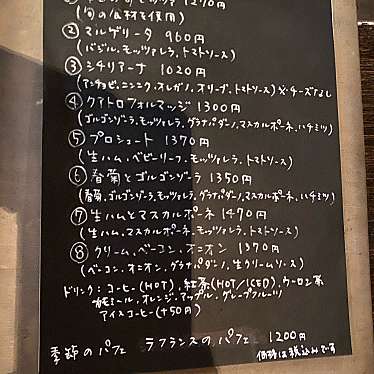 1270円
(旬の食材を使用)
② マルゲリータ 960円
(バジル、モッツァレラ、トマトソース)
③ シチリアーナ 1020円
(アンチョビ、ニンニク、オレガノ、オリーブ、トマトソース) ※チーズなし
④ クアトロフォルマッジ 1300円
(ゴルゴンゾーラ、モッツァレラ、グラナパダーノ、マスカルポーネ、ハチミツ)
⑤ プロシュート 1370円
(生ハム、ベビーリーフ、モッツァレラ、トマトソース)
⑥ 春菊とゴルゴンゾーラ 1350円
(春菊、ゴルゴンゾーラ、モッツァレラ、グラナパダーノ、マスカルポーネ、ハチミツ)
⑦ 生ハムとマスカルポーネ 1470円
(生ハム、マスカルポーネ、モッツァレラ、トマトソース)
⑧ クリーム、ベーコン、オニオン 1370円
(ベーコン、オニオン、グラナパダーノ、生クリームソース)
ドリンク:コーヒー(HOT)、紅茶(HOT/ICED)、ウーロン茶
オレンジ、アップル、グレープフルーツ
アイスコーヒー(+50円)
季節のパフェ ラフランスのパフェ 1200円
価格は税込みです